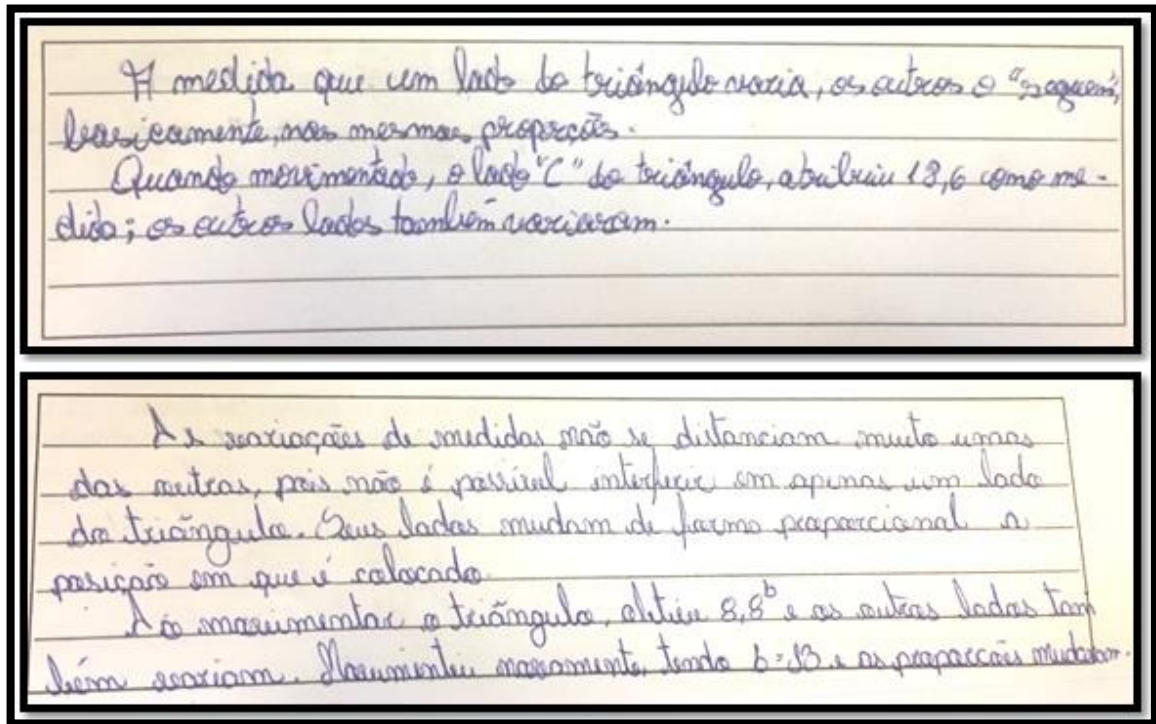 A medida que um lado do triângulo varia, os outros o "seguem",
basicamente, nas mesmas proporções.
Quando movimentado, o lado "C" do triângulo, atribuiu 13,6 como me-
dida; os outros lados também variaram.
As variações de medidas não se distanciam muito umas
das outras, pois não é possível interferir em apenas um lado
do triângulo. Seus lados mudam de forma proporcional a
posição em que é colocado.
Ao movimentar o triângulo, obtive 8,8 b e os outros lados tam
bém variam. Movimentei novamente, tendo b=13 e as proporções mudaram.